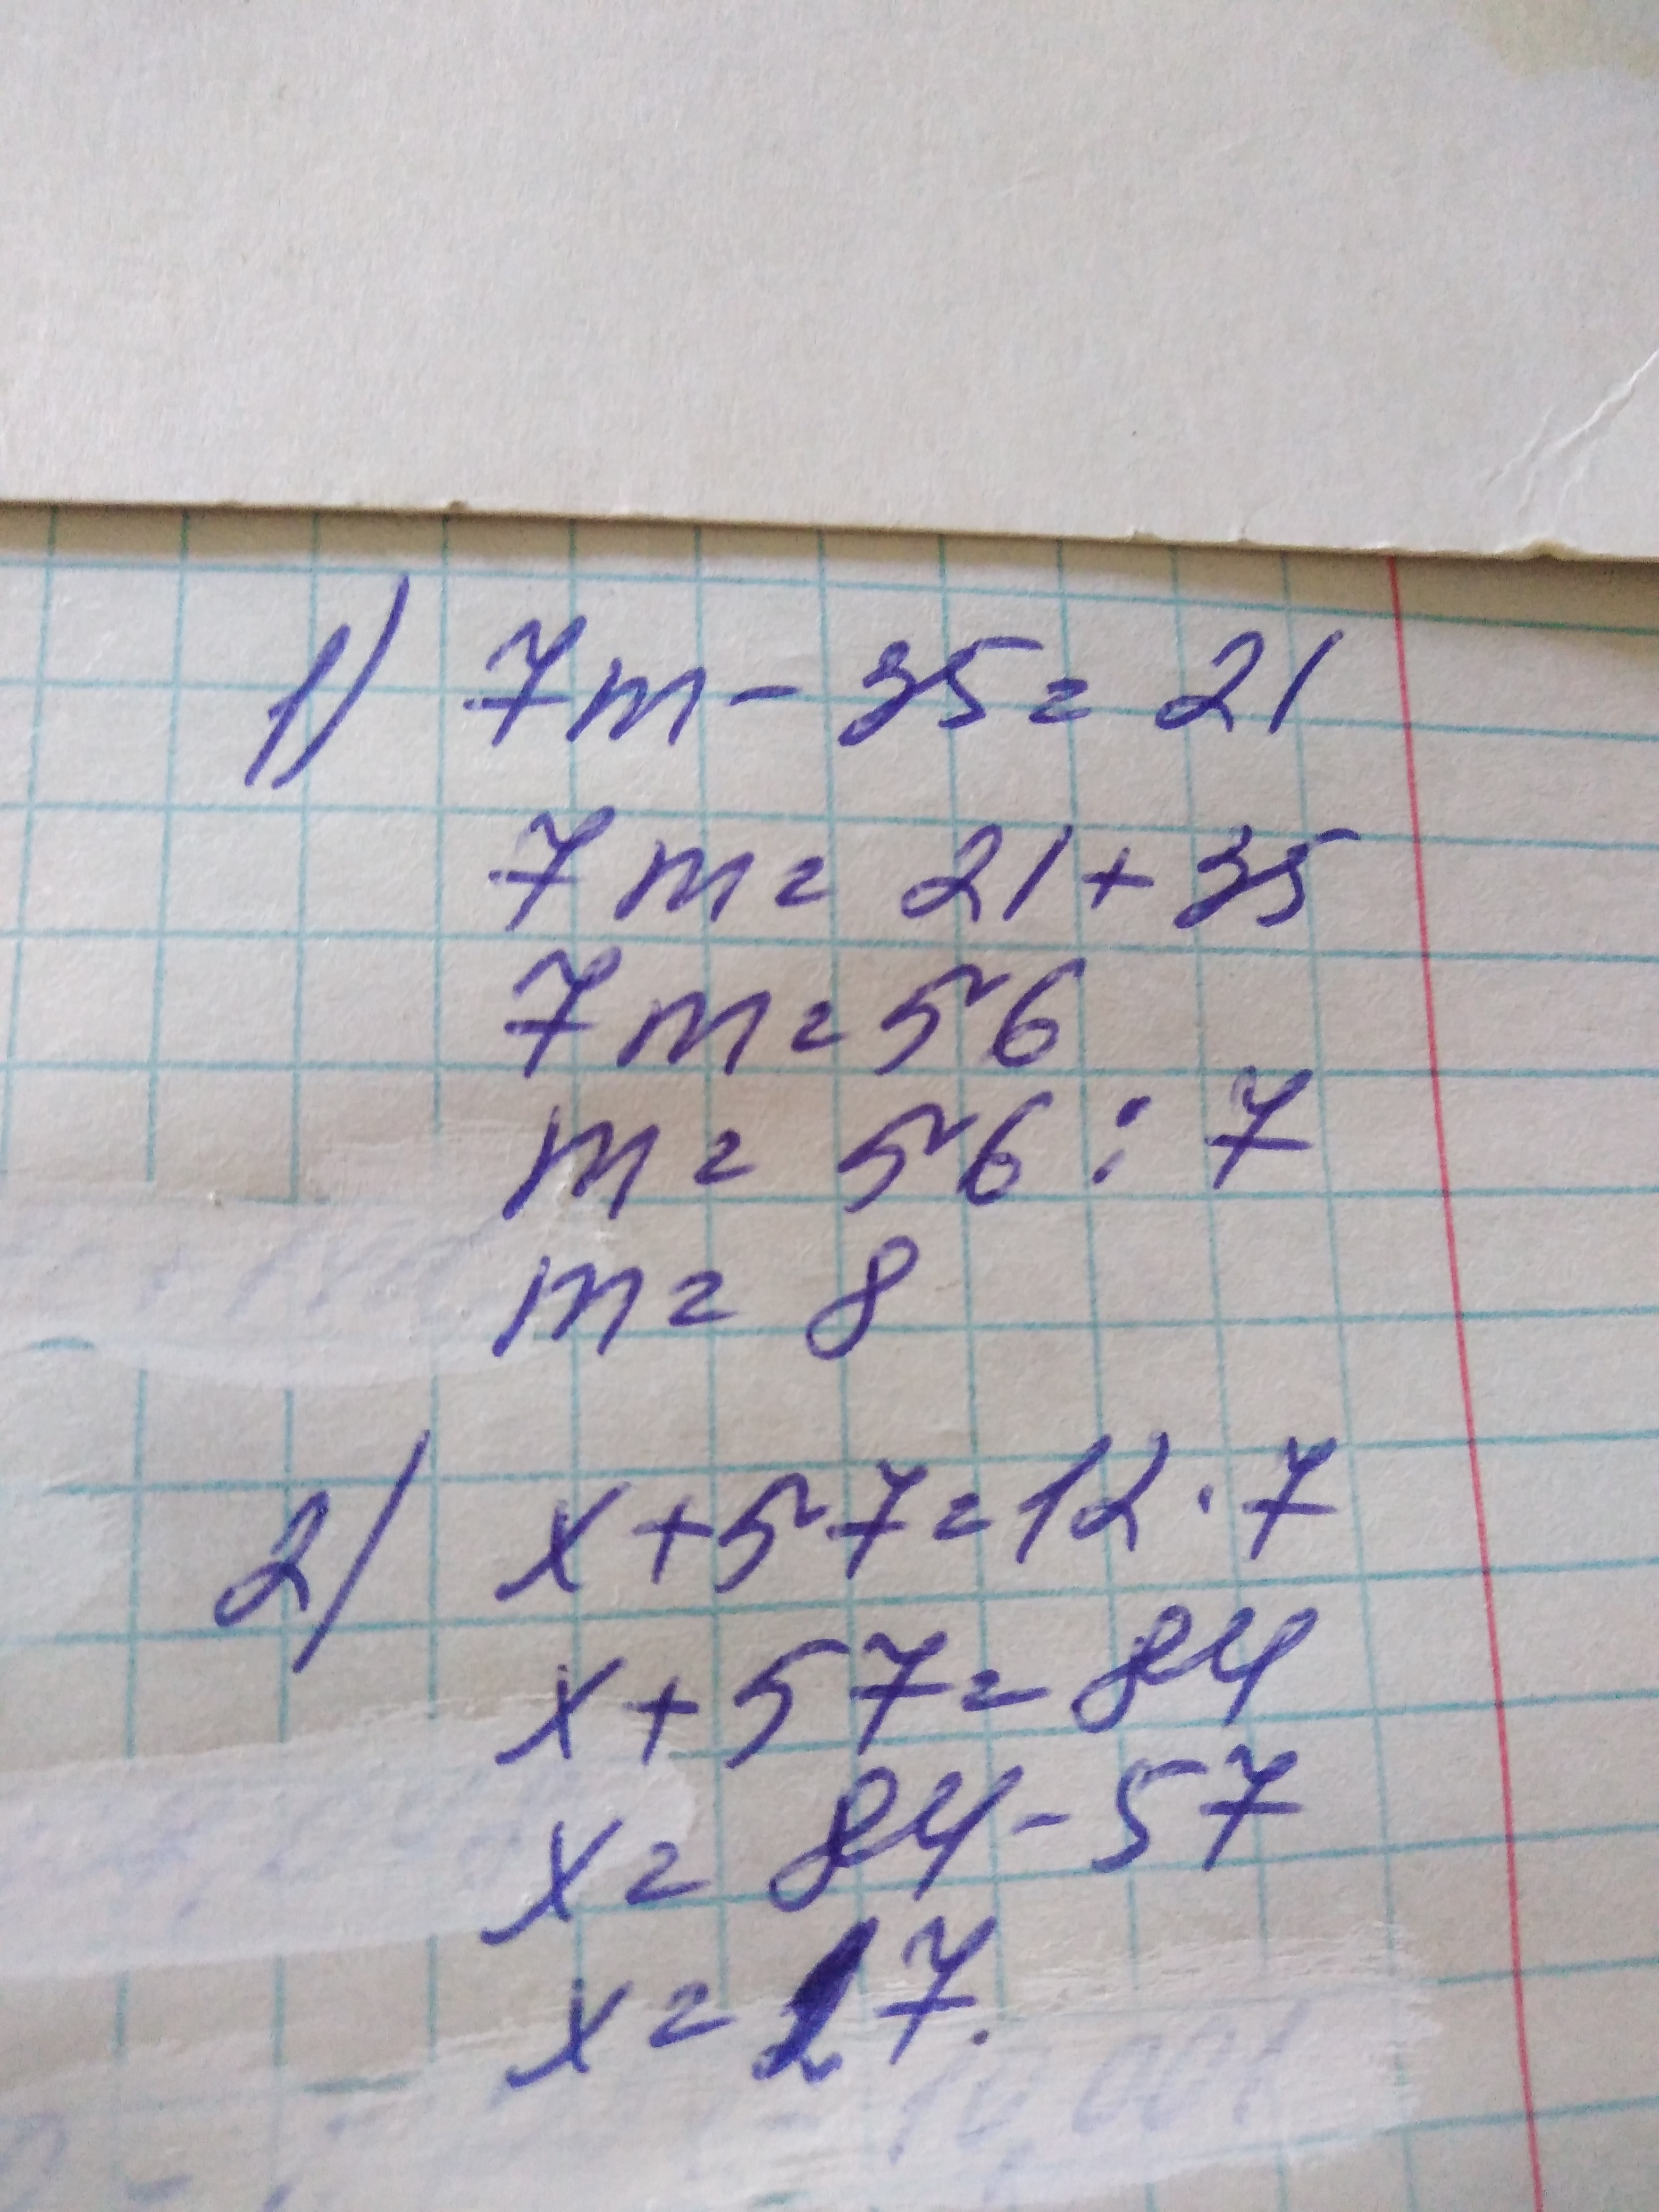 1) 7m - 35 = 21
7m = 21 + 35
7m = 56
m = 56 : 7
m = 8
2) x + 57 = 12 · 7
x + 57 = 84
x = 84 - 57
x = 27.